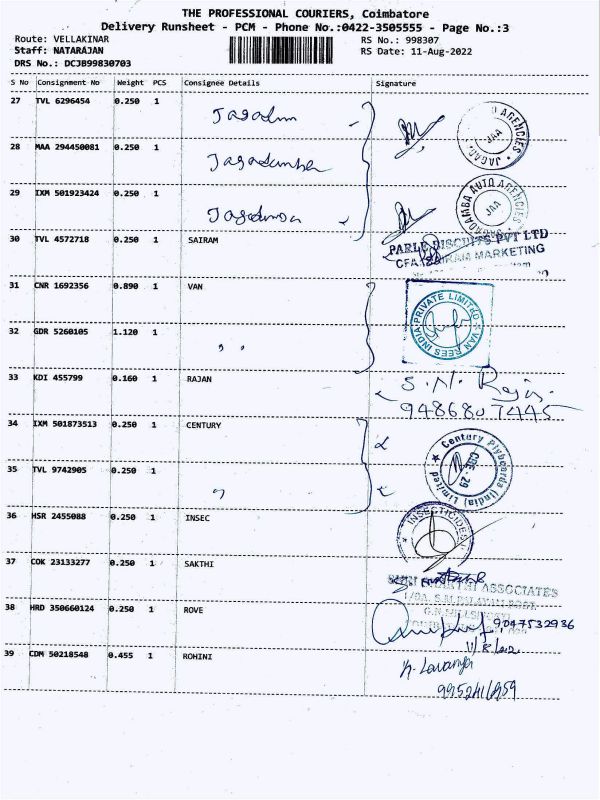 THE PROFESSIONAL COURIERS, Coimbatore
Delivery Runsheet - PCM - Phone No.:0422-3505555 - Page No.:3
Route: VELLAKINAR RS No.: 998307
Staff: NATARAJAN RS Date: 11-Aug-2022
DRS No.: DCJB99830703
S No Consignment No Weight PCS Consignee Details Signature
27 TVL 6296454 0.250 1
AGENCIES JAA JAGAD
28 MAA 294450081 0.250 1 Jagadamba
29 IXM 501923424 0.250 1
JAGADAMBA AUTO AGENCIES JAA
30 TVL 4572718 0.250 1 SAIRAM
PARLE BISCUITS PVT LTD
CFA SAIRAM MARKETING
31 CNR 1692356 0.890 1 VAN
VAN REES INDIA PRIVATE LIMITED
32 GDR 5260105 1.120 1 " "
33 KDI 455799 0.160 1 RAJAN S.N. Rajan
9486807445
34 IXM 501873513 0.250 1 CENTURY
Century Plyboards (India) Limited CBE. 29
35 TVL 9742905 0.250 1 "
36 HSR 2455088 0.250 1 INSEC
INSECTICIDES
37 COK 23133277 0.250 1 SAKTHI
ASSOCIATES
38 HRD 350660124 0.250 1 ROVE 9047532936
39 CDM 50218548 0.455 1 ROHINI N. Lavanya